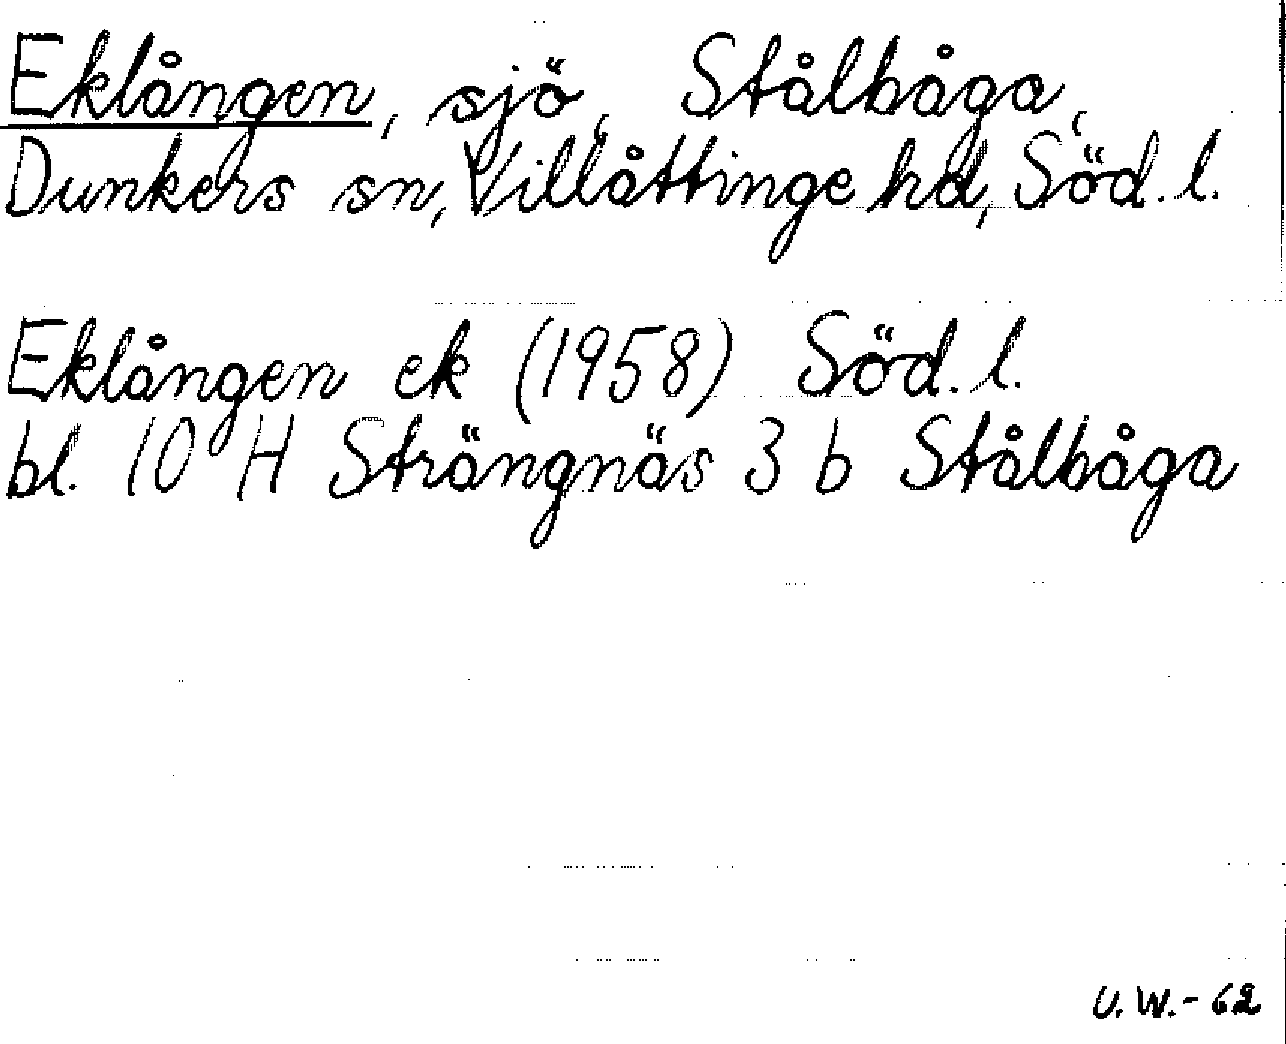 Eklången, sjö, Stålbåga,
Dunkers sn, Villåttinge hd, Söd. l.
Eklången ek (1958) Söd. l.
bl. 10 H Strängnäs 3 b Stålbåga
U. W. - 62